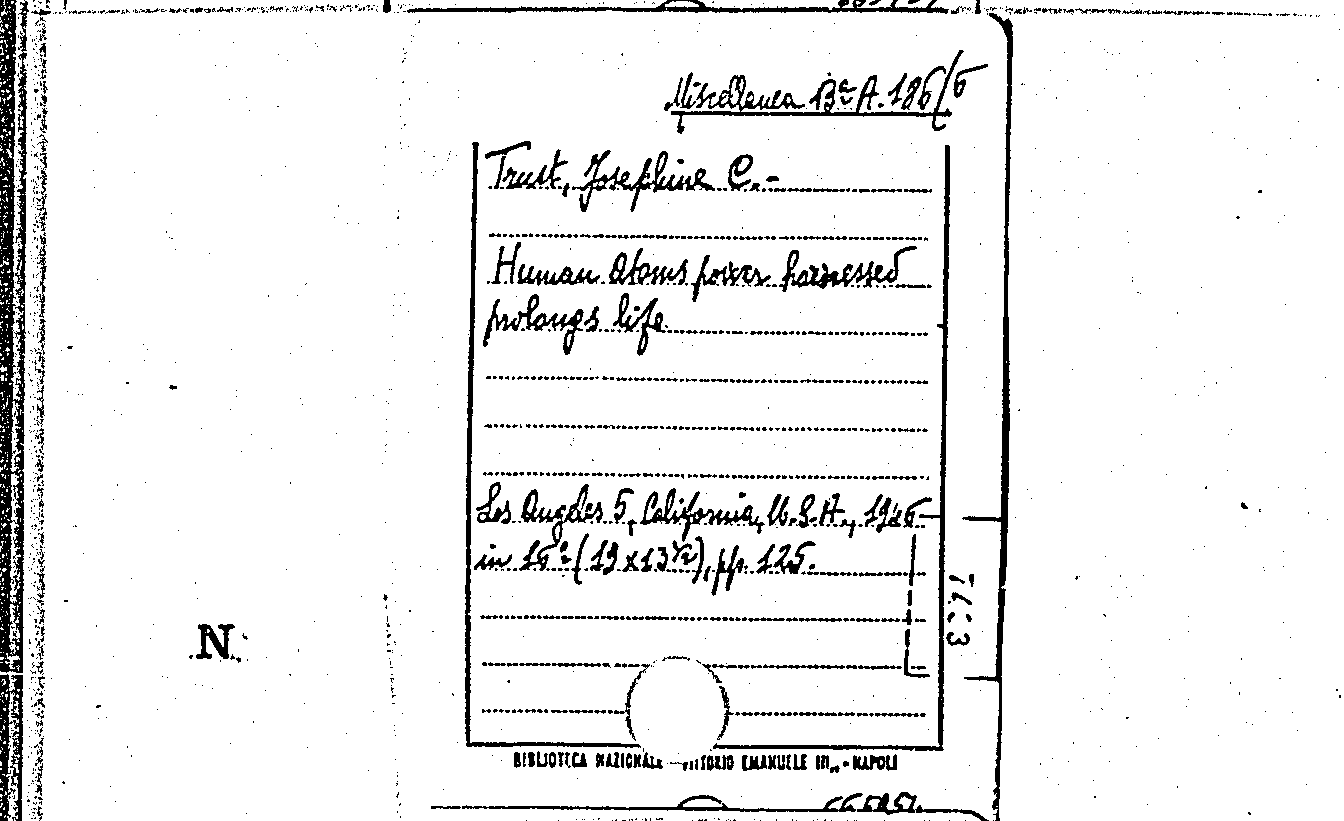 Miscellanea Bª A. 186/6
Trust, Josephine C.-
Human atoms power harnessed
prolongs life
Los Angeles 5, California, U.S.A., 1946-
in 16º (19 x 13½), pp. 125.
N.
BIBLIOTECA NAZIONALE VITTORIO EMANUELE III - NAPOLI